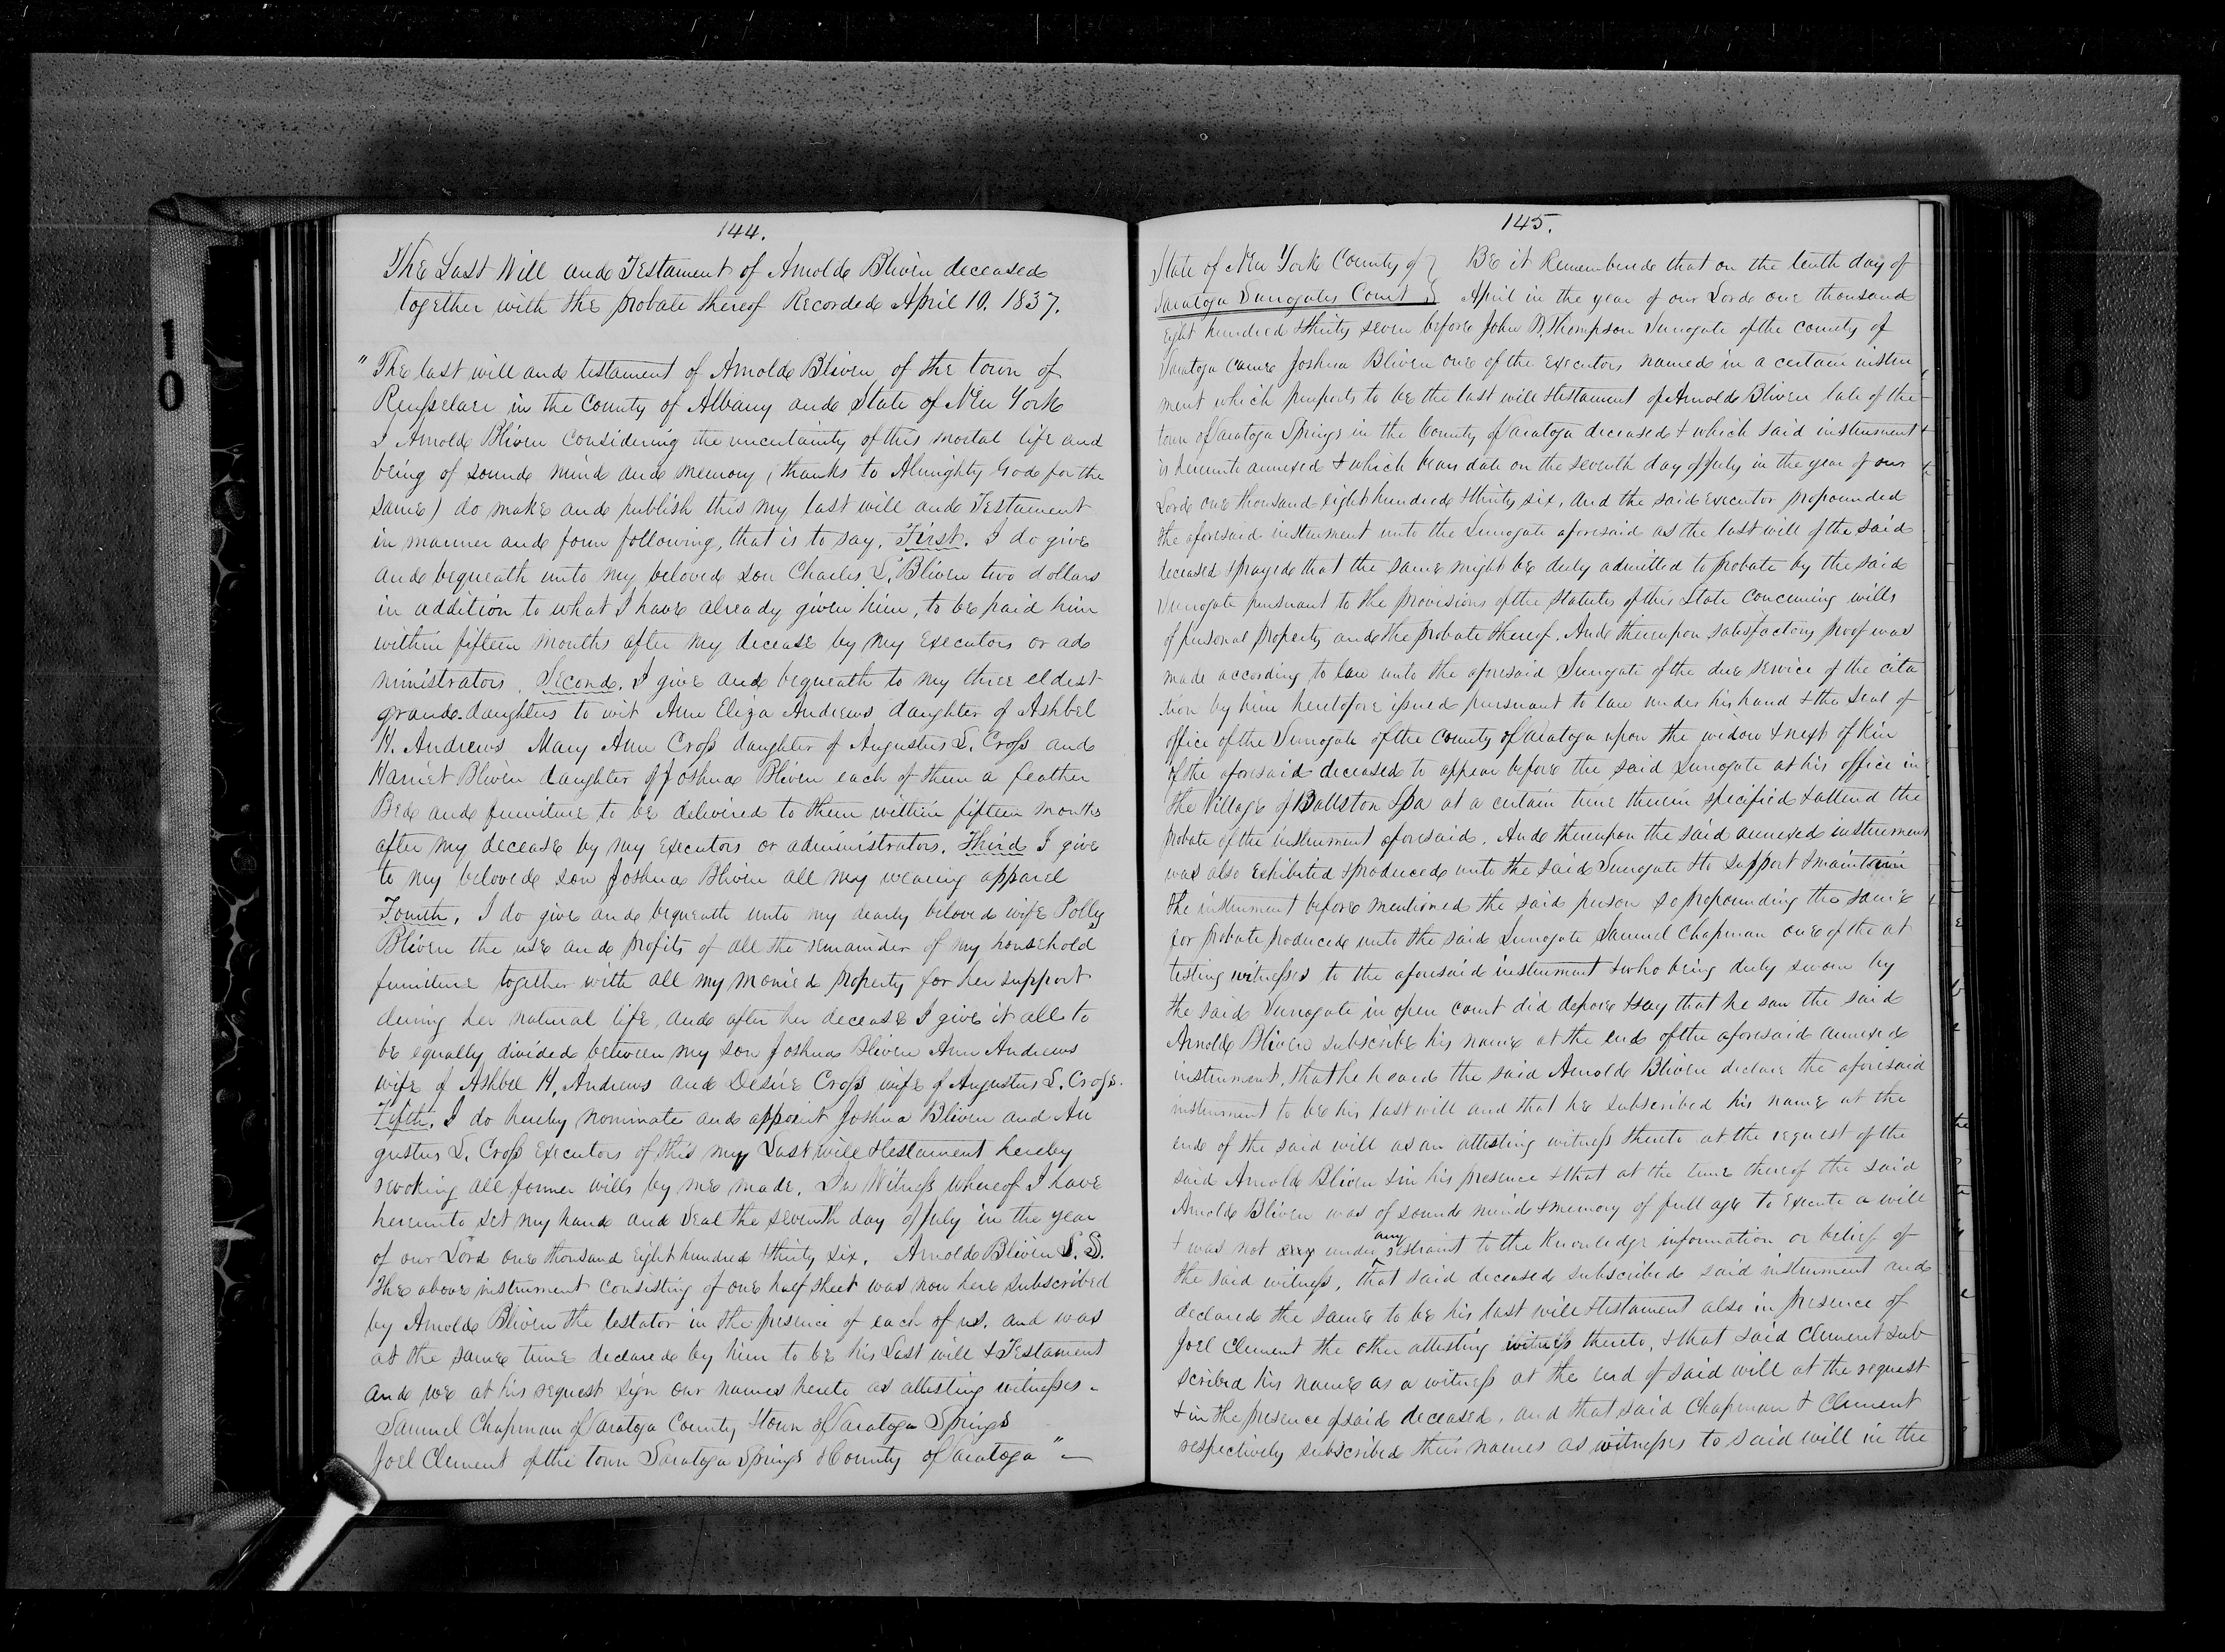 10
144.
The Last Will and Testament of Arnold Bliven deceased
together with the probate thereof Recorded April 10. 1837.
" The last will and testament of Arnold Bliven of the town of
Renſselare in the County of Albany and State of New York
I Arnold Bliven Considering the uncertainty of this mortal life and
being of sound mind and memory (thanks to Almighty God for the
same) do make and publish this my last will and Testament
in manner and form following, that is to say, First. I do give
and bequeath unto my beloved son Charles S. Bliven two dollars
in addition to what I have already given him, to be paid him
within fifteen months after my decease by my Executors or ad
ministrators. Second. I give and bequeath to my three eldest
grand-daughters to wit Ann Eliza Andrews daughter of Ashbel
H. Andrews Mary Ann Croſs daughter of Augustus S. Croſs and
Harriet Bliven daughter of Joshua Bliven each of them a feather
Bed and furniture to be delivered to them within fifteen months
after my decease by my Executors or administrators. Third I give
to my beloved son Joshua Bliven all my wearing apparel
Fourth. I do give and bequeath unto my dearly beloved wife Polly
Bliven the use and profits of all the remainder of my household
furniture together with all my monied property for her support
during her natural life, and after her decease I give it all to
be equally divided between my son Joshua Bliven Ann Andrews
wife of Ashbel H. Andrews and Desire Croſs wife of Augustus S. Croſs.
Fifth. I do hereby nominate and appoint Joshua Bliven and Au
gustus S. Croſs Executors of this my Last will & testament hereby
revoking all former wills by me made. In Witneſs whereof I have
hereunto set my hand and seal the seventh day of July in the year
of our Lord one thousand eight hundred & thirty six. Arnold Bliven L. S.
The above instrument consisting of one half sheet was now here subscribed
by Arnold Bliven the testator in the presence of each of us. and was
at the same time declared by him to be his Last will & Testament
and we at his request sign our names hereto as attesting witneſses.
Samuel Chapman of Saratoga County & town of Saratoga Springs
Joel Clement of the town Saratoga Springs & County of Saratoga "
145.
State of New York County of } Be it Remembered that on the tenth day of
Saratoga Surrogates Court } April in the year of our Lord one thousand
eight hundred & thirty seven before John W. Thompson Surrogate of the county of
Saratoga came Joshua Bliven one of the executors named in a certain instru
ment which purports to be the last will & testament of Arnold Bliven late of the
town of Saratoga Springs in the County of Saratoga deceased & which said instrument
is hereunto annexed & which bears date on the seventh day of July in the year of our
Lord one thousand eight hundred & thirty six. And the said executor propounded
the aforesaid instrument unto the Surrogate aforesaid as the last will of the said
deceased & prayed that the same might be duly admitted to probate by the said
Surrogate pursuant to the provisions of the statutes of this State concerning wills
of personal property and the probate thereof. And thereupon satisfactory proof was
made according to law unto the aforesaid Surrogate of the due service of the cita
tion by him heretofore iſsued pursuant to law under his hand & the seal of
office of the Surrogate of the County of Saratoga upon the widow & next of kin
of the aforesaid deceased to appear before the said Surrogate at his office in
the Village of Ballston Spa at a certain time therein specified & attend the
probate of the instrument aforesaid. And thereupon the said annexed instrument
was also Exhibited & produced unto the said Surrogate & to support & maintain
the instrument before mentioned the said person so propounding the same
for probate produced unto the said Surrogate Samuel Chapman one of the at
testing witneſses to the aforesaid instrument & who being duly sworn by
the said Surrogate in open court did depose & say that he saw the said
Arnold Bliven subscribe his name at the end of the aforesaid annexed
instrument, that he heard the said Arnold Bliven declare the aforesaid
instrument to be his last will and that he subscribed his name at the
end of the said will as an attesting witneſs thereto at the request of the
said Arnold Bliven & in his presence & that at the time thereof the said
Arnold Bliven was of sound mind & memory of full age to execute a will
& was not under any restraint to the knowledge information or belief of
the said witneſs, that said deceased subscribed said instrument and
declared the same to be his last will & testament also in presence of
Joel Clement the other attesting witneſs thereto, & that said Clement sub
scribed his name as a witneſs at the end of said will at the request
& in the presence of said deceased. and that said Chapman & Clement
respectively subscribed their names as witneſses to said will in the